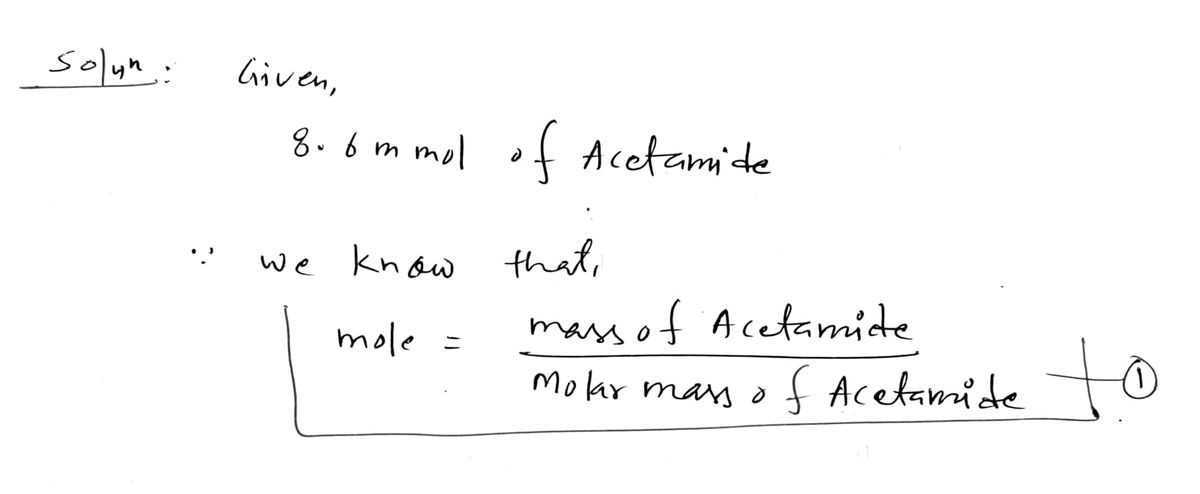 Solyn: Given,
8.6 m mol of Acetamide
∵ we know that,
mole = mass of Acetamide / Molar mass of Acetamide ①